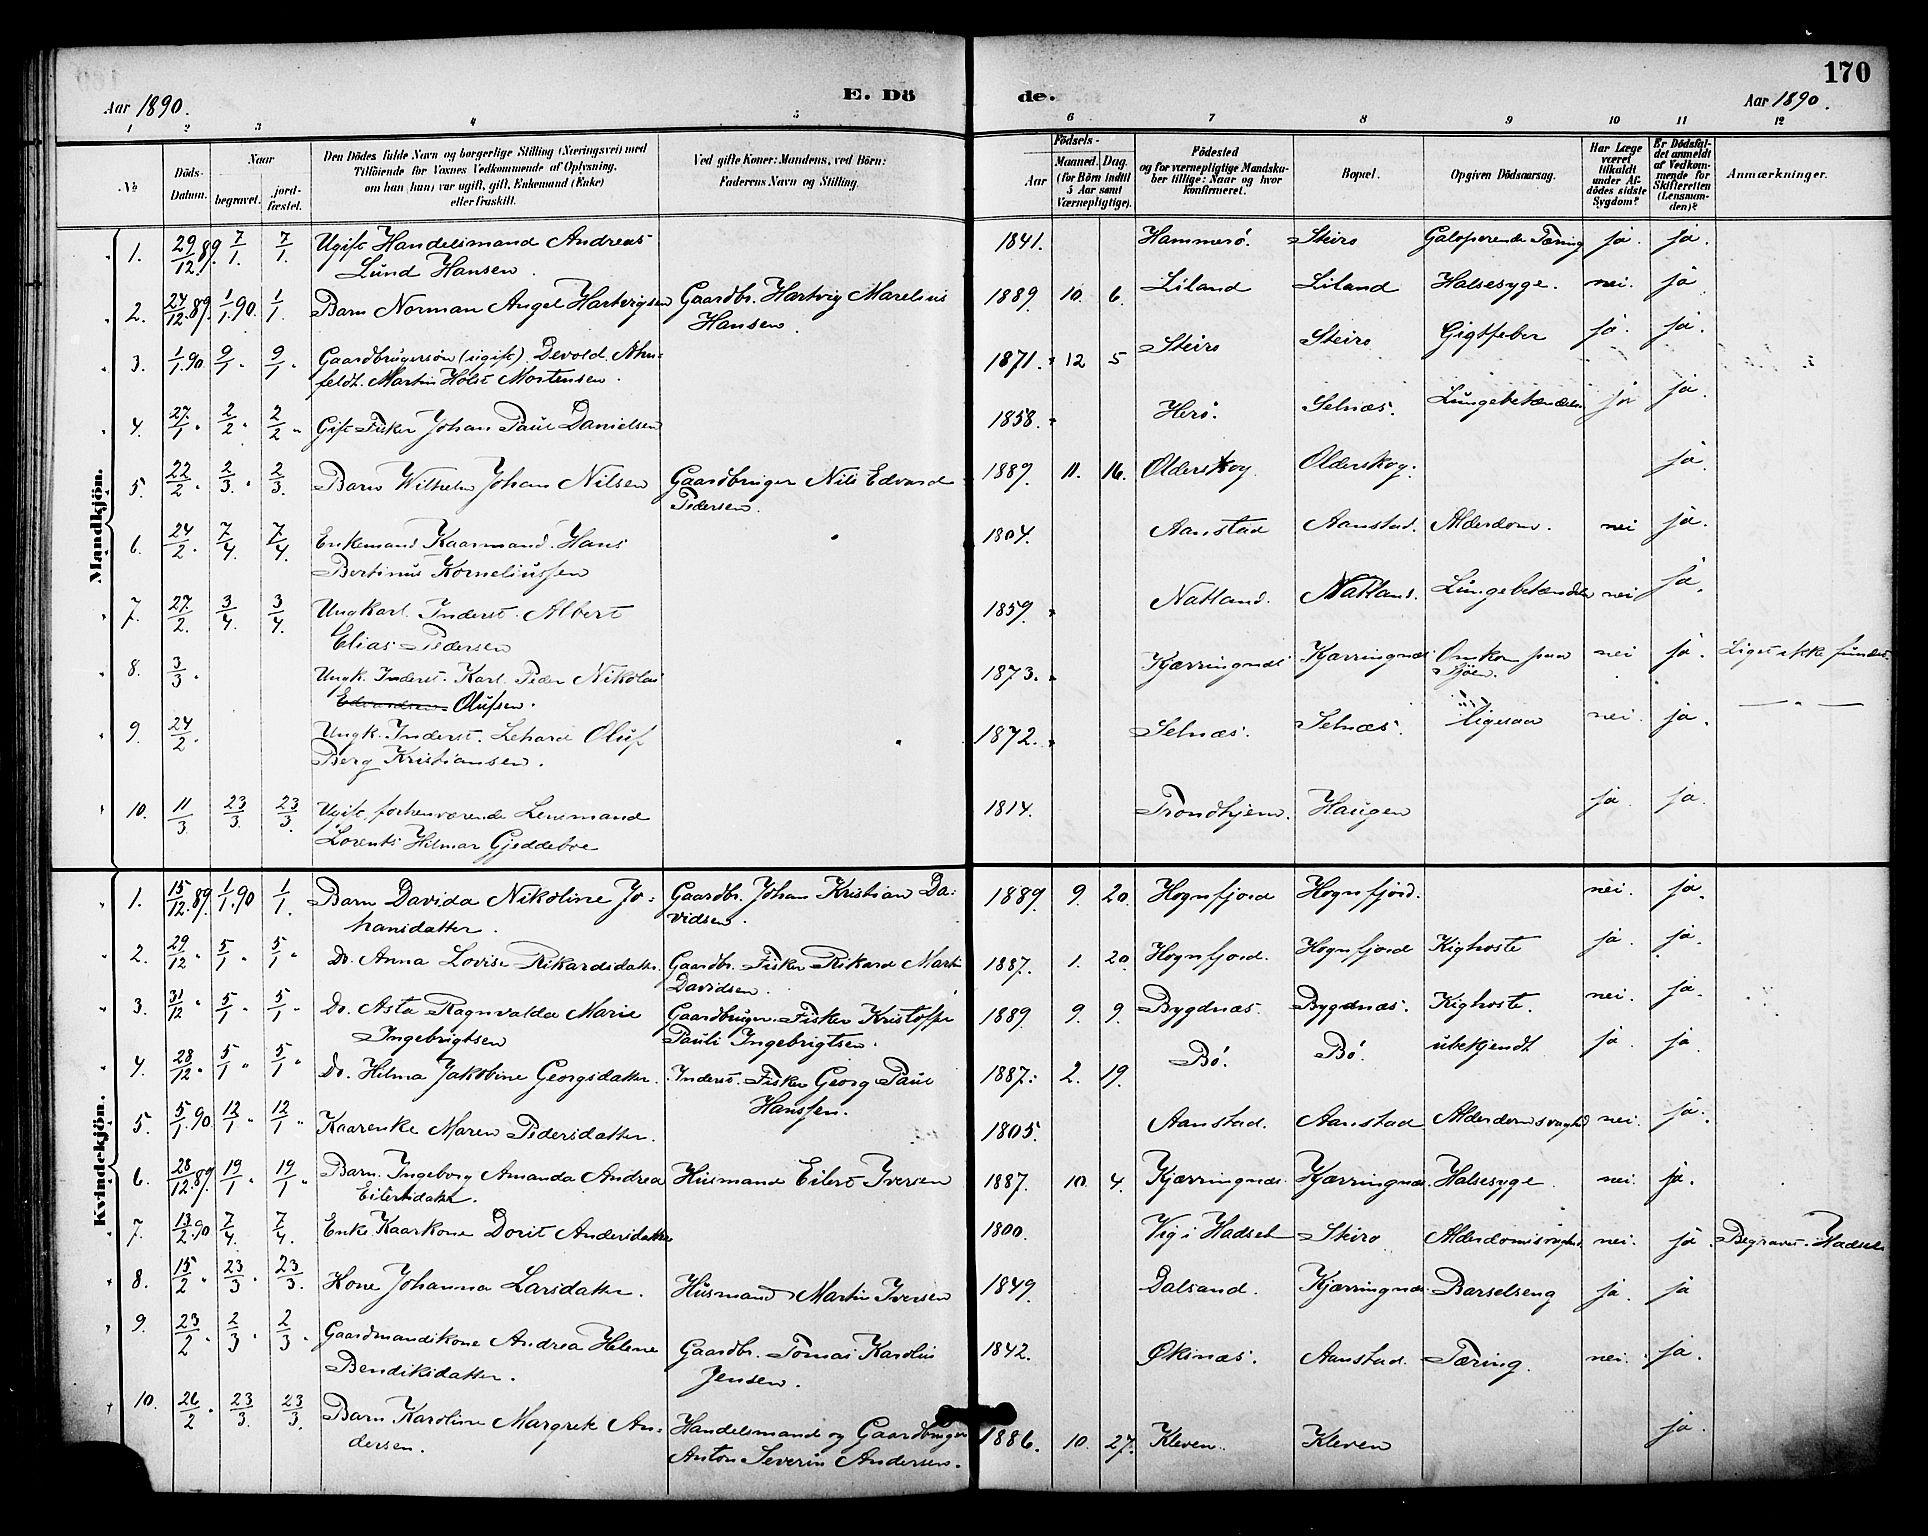 170
Aar 1890.
E. Dö de.
Aar 1890.
1 2 3 4 5 6 7 8 9 10 11 12
№
Döds-Datum.
Naar
begravet.
jordfæstet.
Den Dödes fulde Navn og borgerlige Stilling (Næringsvei) med
Tilföiende for Voxnes Vedkommende af Oplysning,
om han (hun) var ugift, gift, Enkemand (Enke)
eller fraskilt.
Ved gifte Koner: Mandens, ved Börn:
Faderens Navn og Stilling.
Födsels-
Aar
Maaned. Dag.
(for Börn indtil
5 Aar samt
Værnepligtige).
Födested
og for værnepligtige Mandska-
ber tillige: Naar og hvor
konfirmeret.
Bopæl.
Opgiven Dödsaarsag.
Har Læge
været
tilkaldt
under Af-
dödes sidste
Sygdom?
Er Dödsfal-
det anmeldt
af Vedkom-
mende for
Skifteretten
(Lensman-
den)?
Anmærkninger.
Mandkjön.
1. 29/12 89. 7/1. 7/1. Ugift Handelsmand Andreas 1841. Hammerø. Steiro Galoperende Tæring ja. ja.
Lund Hansen.
2. 24/12 89. 1/1 90. 1/1. Barn Norman Angel Hartvigsen Gaardbr. Hartvig Marelius 1889 10. 6. Liland Liland Halsesyge. nei. ja
Hansen.
3. 1/1 90 9/1 " 9/1 " Gaardbrugersøn (ugift) Devold 1871. 12 5 Steiro Steiro Gigtfeber ja. ja.
feldt. Martin Holst Mortensen.
4. 27/1 " 2/2 " 2/2 " Gift Fisker Johan Paul Danielsen 1858. Herø. Selnæs. Lungebetændelse ja ja.
5. 22/2 " 2/3 " 2/3. Barn Wilhelm Johan Nilsen Gaardbruger Nils Edvard 1889. 11. 16. Olderskog Olderskog. ja.
Pedersen.
6. 24/2 " 7/4. 7/4. Enkemand Kaarmand Hans 1804. Aanstad Aanstad. Alderdom. nei ja.
Bertinus Korneliussen
7. 27/2. 3/4. 3/4. Ungkarl Inderst. Albert 1859. Natland. Natland. Lungebetændelse nei ja.
Elias Pedersen
8. 3/3. Ungk. Inderst. Karl Peder Nikolai 1873. Kjærringnæs Kjærringnæs Omkom paa nei ja. Liget ikke fundet.
Sjöen.
Edvardsen Olufsen.
9. 24/2. Ungk. Inderst. Oluf 1872. Selnæs. Selnæs. ligesaa nei. ja. — " —
Berg Kristiansen.
10. 11/3 23/3. 23/3. Ugift, forhenværende Lensmand 1814. Trondhjem. Haugen ja. ja.
Lorents Hilmar Gjeddebo
Kvindekjön.
1. 15/12 89. 1/1 90 1/1. Barn Davida Nikoline Jo- Gaardbr. Johan Kristian Da- 1889 9. 20. Hognfjord Hognfjord. nei. ja.
hansdatter. vidsen.
2. 29/12 " 5/1 " 5/1 " Do. Anna Lovise Rikardsdatter. Gaardbr. Fisker Rikard Martin 1887. 1. 20. Hognfjord. Hognfjord Kighoste ja. ja.
Davidsen.
3. 31/12 " 5/1 " 5/1 " Do. Asta Ragnvalda Marie Gaardbruger. Fisker Kristoffer 1889. 9. 9. Bygdnæs. Bygdnæs. Kighoste. nei. ja.
Ingebrigtsen Pauli Ingebrigtsen.
4. 28/12 " 5/1 " 5/1 " Do. Hilma Jakobine Georgsdatter. Inderst. Fisker Georg Paul 1887. 2. 19. Bø. Bø. ubekjendt ja. ja.
Hanssen.
5. 5/1 90 12/1 " 12/1 " Kaarenke Maren Pedersdatter. 1805. Aanstad. Aanstad Alderdomsvaghed nei. ja.
6. 28/12 89 19/1 " 19/1 " Barn. Ingeborg Amanda Andrea Husmand Eilert Iversen 1887. 10. 4. Kjærringnæs. Kjærringnæs. Halsesyge. nei. ja.
Eilertsdatter.
7. 13/2 90 7/4. 7/4. Enke Kaarkone Dorit Andersdatter 1800. Vig i Hadsel Steiro Alderdomsvaghed nei. ja. Begravet i Hadsel
8. 15/2 " 23/3 " 23/3. Kone Johanna Larsdatter. Husmand Martin Iversen 1849. Dalsand. Kjærringnæs Barselseng ja. ja
9. 23/2 " 2/3 " 2/3. Gaardmandskone Andrea Helene Gaardbr. Tomas Karolius 1842. Øksnæs. Aanstad. Tæring. nei. ja.
Bendiksdatter. Jensen.
10. 26/2 " 23/3. 23/3. Barn Karoline Margrete An- Handelsmand og Gaardbruger 1886. 10. 27. Kleven. Kleven ja.
dersen. Anton Severin Andersen.